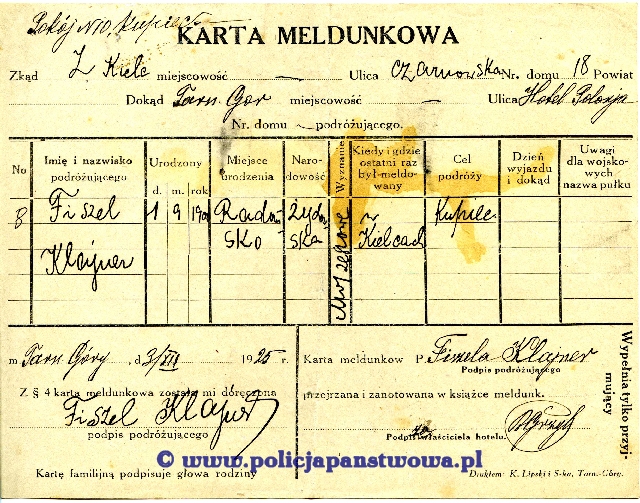 Pokój N10, kupiec
KARTA MELDUNKOWA
Zkąd Z Kielc miejscowość — Ulica Czarnowska Nr. domu 18 Powiat
Dokąd Tarn. Gór miejscowość — Ulica Hotel Polonja
Nr. domu ~ podróżującego.
No Imię i nazwisko podróżującego Urodzony d. m. rok Miejsce urodzenia Narodowość Wyznanie Kiedy i gdzie ostatni raz był-meldowany Cel podróży Dzień wyjazdu i dokąd Uwagi dla wojskowych nazwa pułku
8 Fiszel 1 9 190 Radom Żydow Kupiec
sko ska w Kielcach
Klajner Mojżeszowe
m Tarn. Góry, d 3/XII 1925 r.
Z § 4 karta meldunkowa została mi doręczona
Fiszel Klajner
podpis podróżującego
Kartę familijną podpisuje głowa rodziny
Karta meldunkow P. Fiszela Klajner
Podpis podróżującego
przejrzana i zanotowana w książce meldunk.
Podpis właściciela hotelu.
Wypełnia tylko przyjmujący
Drukiem: K. Lipski i S-ka, Tarn.-Góry.
© www.policjapanstwowa.pl